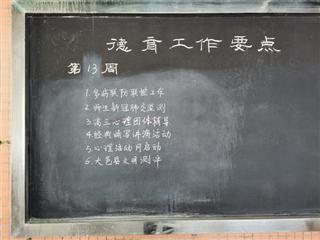 德育工作要点
第13周
1.多病联防联控工作
2.师生新冠肺炎监测
3.高三心理团体辅导
4.经典诵写讲演活动
5.心理活动月启动
6.大邑县文明测评